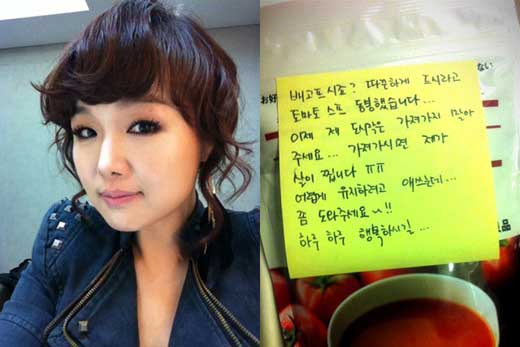 배고프시죠? 따끈하게 드시라고
토마토 스프 동봉했습니다...
이제 제 도시락은 가져가지 말아
주세요... 가져가시면 제가
살이 찝니다 ㅠㅠ
어렵게 유지하려고 애쓰는데...
쫌 도와주세요~!!
하루 하루 행복하시길...